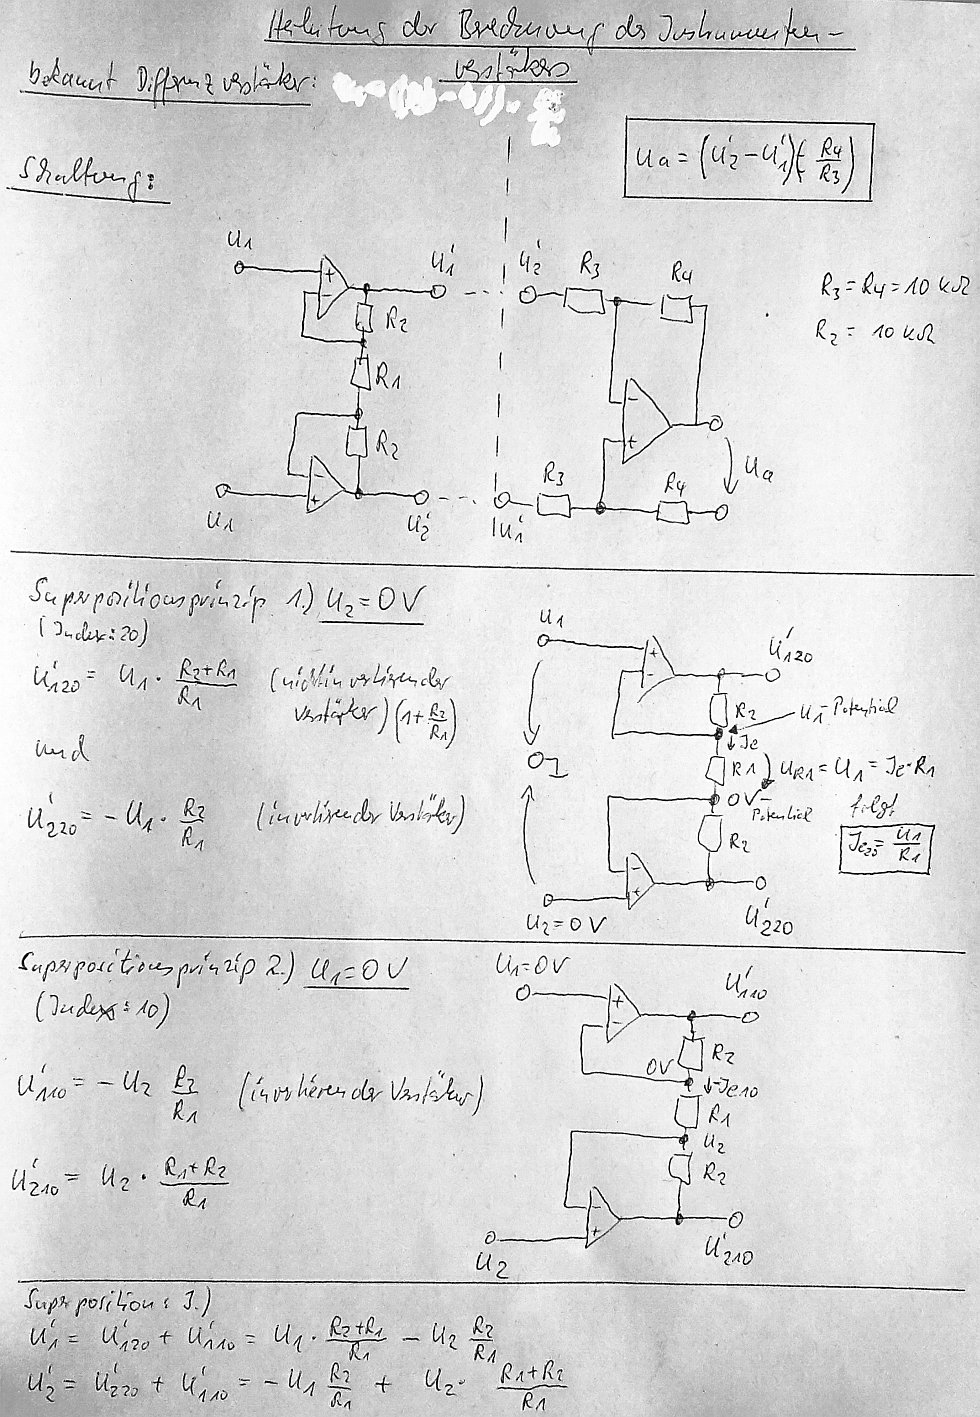 Herleitung der Berechnung des Instrumenten-
verstärkers
bekannt Differenzverstärker:
Ua = (U2' - U1')(- R4/R3)
Schaltung:
U1
U1'
U2'
R3
R4
R3 = R4 = 10 kΩ
R2 = 10 kΩ
+
-
R2
R1
R2
-
+
-
+
Ua
R3
R4
U1
U2'
U1'
Superpositionsprinzip 1.) U2 = 0V
(Index: 20)
U'120 = U1 · (R2+R1)/R1 (nichtinvertierender
Verstärker) (1 + R2/R1)
und
U'220 = - U1 · R2/R1 (invertierender Verstärker)
U1
+
-
U'120
R2
U1-Potential
↓Ie
R1
UR1 = U1 = Ie·R1
0V-
Potential
folgt
Ie20 = U1/R1
R2
-
+
U2 = 0V
U'220
Superpositionsprinzip 2.) U1 = 0V
(Index: 10)
U'110 = - U2 R2/R1 (invertierender Verstärker)
U'210 = U2 · (R1+R2)/R1
U1 = 0V
+
-
U'110
R2
0V
↓Ie10
R1
U2
R2
-
+
U2
U'210
Superposition: 3.)
U1' = U'120 + U'110 = U1 · (R2+R1)/R1 - U2 R2/R1
U2' = U'220 + U'110 = - U1 R2/R1 + U2 · (R1+R2)/R1